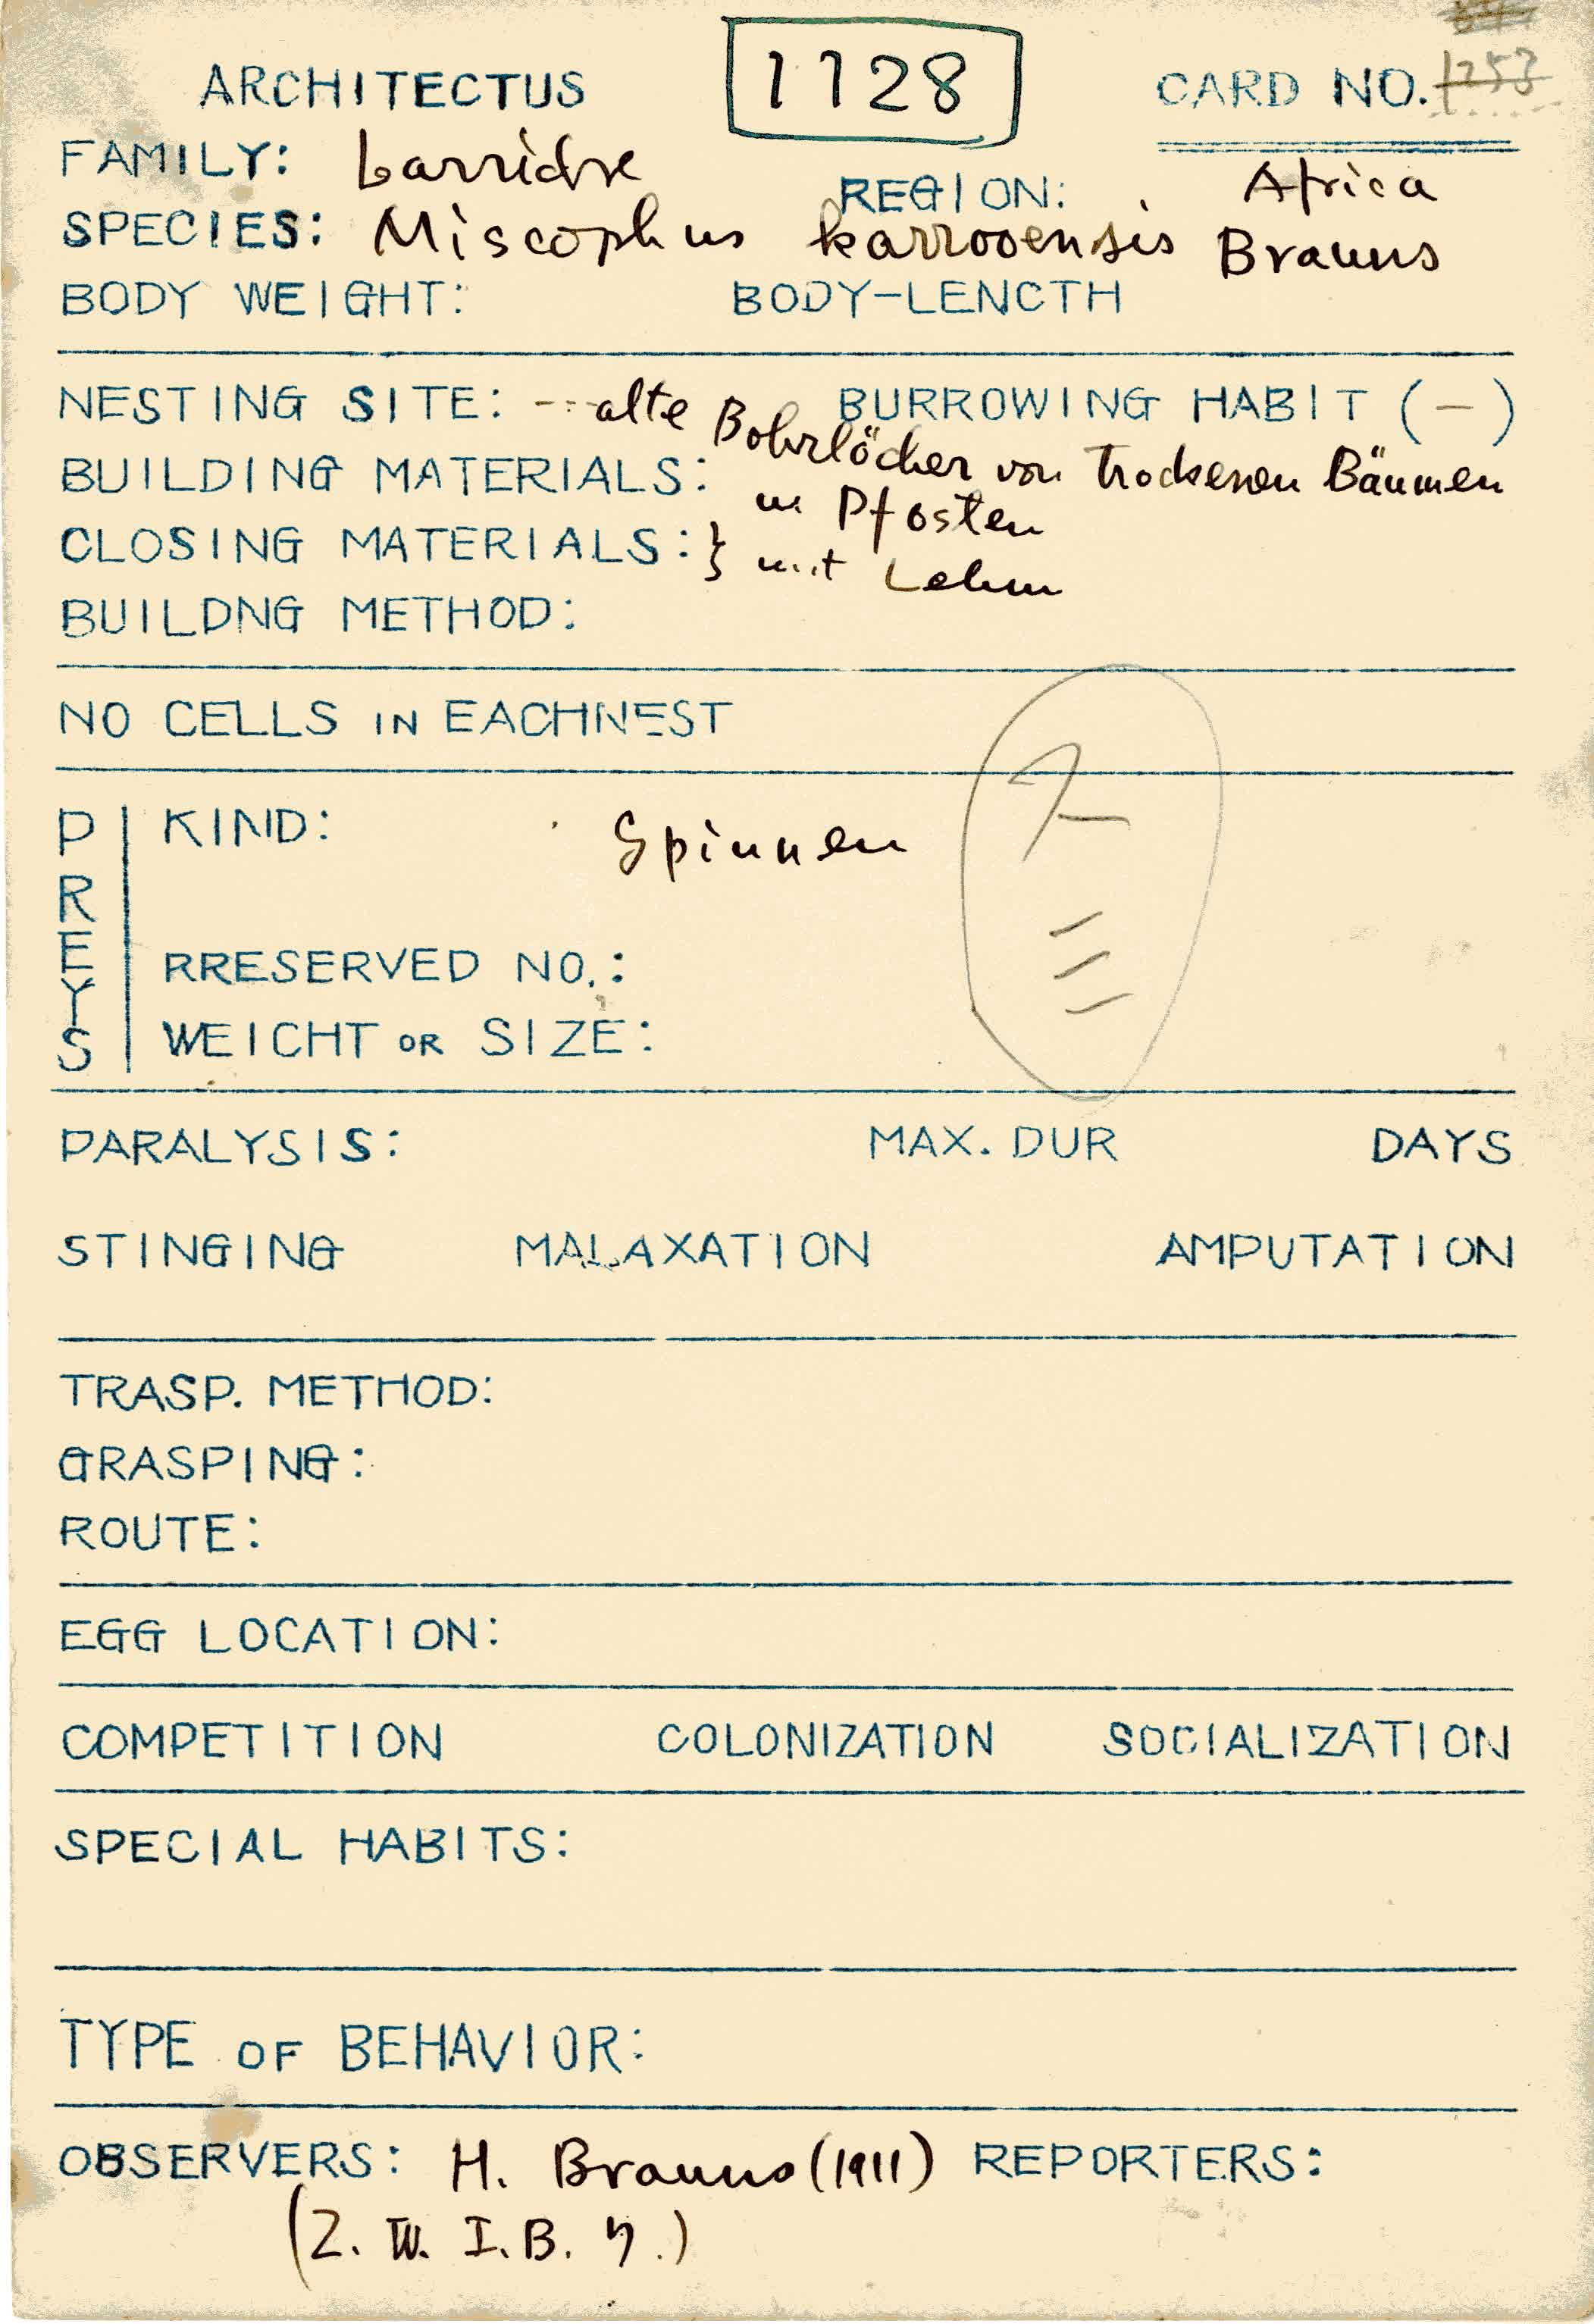 ARCHITECTUS 1128 CARD NO. 1253
FAMILY: Larridae REGION: Africa
SPECIES: Miscophus karrooensis Brauns
BODY WEIGHT: BODY-LENCTH
NESTING SITE: --- alte Bohrlöcher von trockenen Bäumen BURROWING HABIT (-)
u. Pfosten
BUILDING MATERIALS:
CLOSING MATERIALS: } mit Lehm
BUILDNG METHOD:
NO CELLS IN EACHNEST
PREYS
KIND: Spinnen
RRESERVED NO.:
WEICHT OR SIZE:
PARALYSIS: MAX. DUR DAYS
STINGING MALAXATION AMPUTATION
TRASP. METHOD:
GRASPING:
ROUTE:
EGG LOCATION:
COMPETITION COLONIZATION SOCIALIZATION
SPECIAL HABITS:
TYPE OF BEHAVIOR:
OBSERVERS: H. Brauns (1911) REPORTERS:
(Z. W. I. B. 7.)